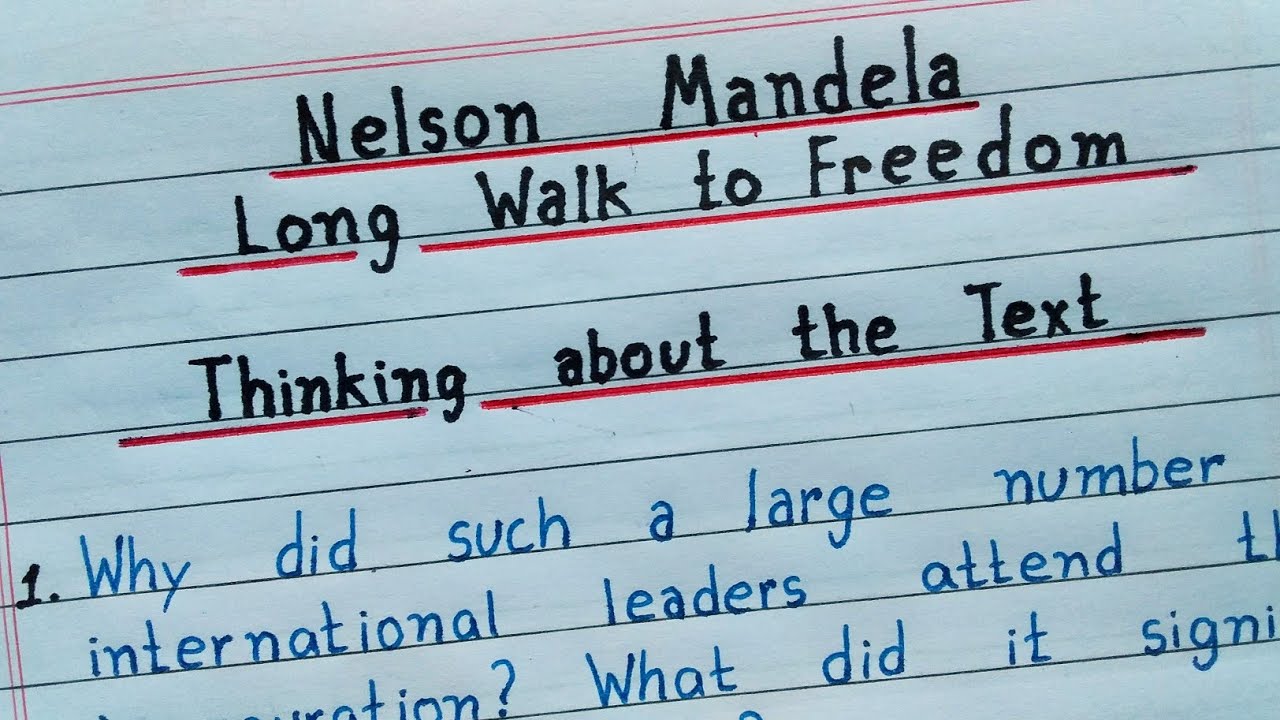 Nelson Mandela
Long Walk to Freedom
Thinking about the Text
1. Why did such a large number
international leaders attend
What did it